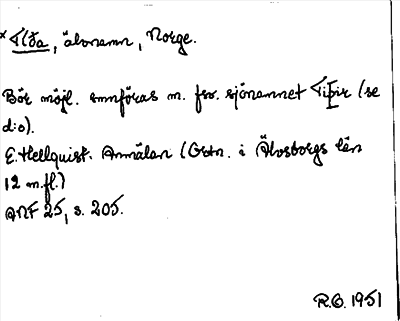 * Tíða, älvnamn, Norge.
Bör möjl. smnföras m. fsv. sjönamnet Tiþir (se
d:o).
E. Hellquist. Anmälan (Ortn. i Älvsborgs län
12 m.fl.)
ANF 25, s. 205.
R.O. 1951